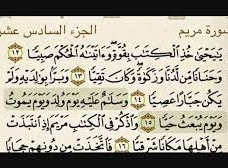 سورة مريم الجزء السادس عشر
يَٰيَحْيَىٰ خُذِ ٱلْكِتَٰبَ بِقُوَّةٍ وَءَاتَيْنَٰهُ ٱلْحُكْمَ صَبِيًّا ١٢
وَحَنَانًا مِّن لَّدُنَّا وَزَكَوٰةً وَكَانَ تَقِيًّا ١٣ وَبَرًّۢا بِوَٰلِدَيْهِ وَلَمْ
يَكُن جَبَّارًا عَصِيًّا ١٤ وَسَلَٰمٌ عَلَيْهِ يَوْمَ وُلِدَ وَيَوْمَ يَمُوتُ
وَيَوْمَ يُبْعَثُ حَيًّا ١٥ وَٱذْكُرْ فِى ٱلْكِتَٰبِ مَرْيَمَ إِذِ ٱنتَبَذَتْ
مِنْ أَهْلِهَا مَكَانًا شَرْقِيًّا ١٦ فَٱتَّخَذَتْ مِن دُونِهِمْ حِجَابًا